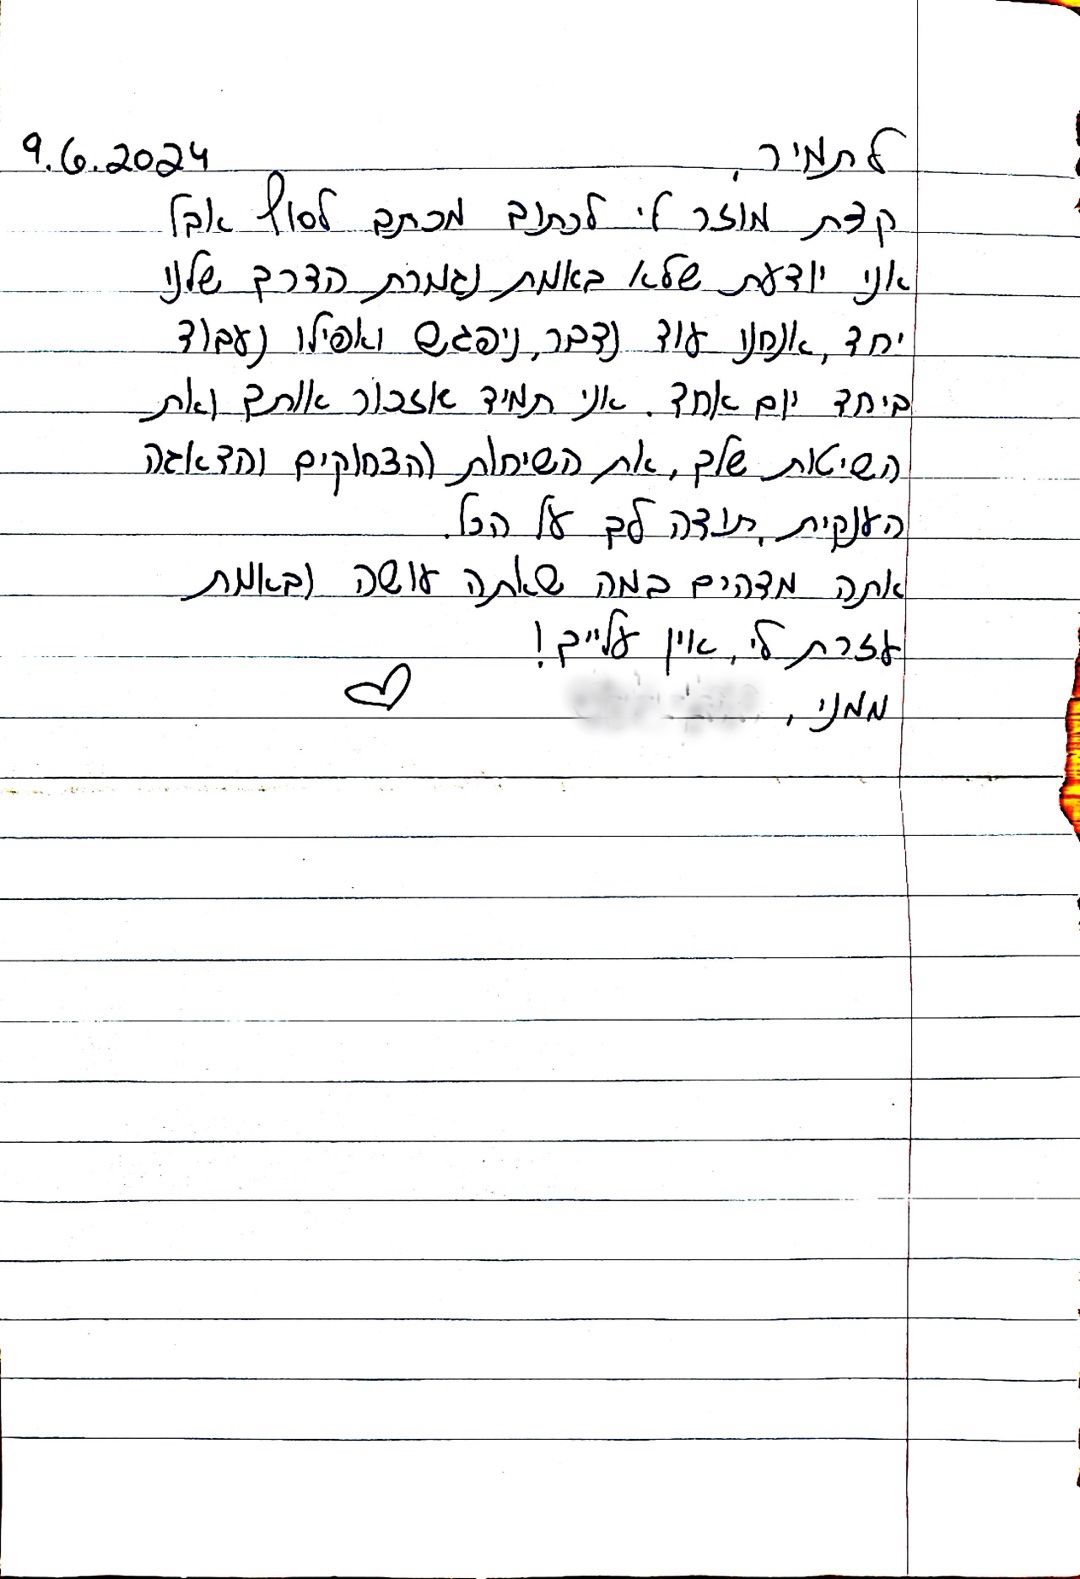 לתמיר, 9.6.2024
קצת מוזר לי לכתוב מכתב לסוף אבל
אני יודעת שלא באמת נגמרת הדרך שלנו
יחד, אנחנו עוד נדבר, ניפגש ואפילו נעבוד
ביחד יום אחד. אני תמיד אזכור אותך ואת
השיטות שלך, את השיחות והצחוקים והדאגה
הענקית, תודה לך על הכל.
אתה מדהים במה שאתה עושה ובאמת
עזרת לי, אין עלייך!
ממני,